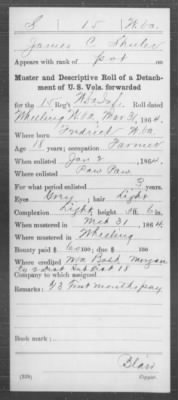 S | 15 | W. Va.
James C Shuler
Appears with rank of Pvt on
Muster and Descriptive Roll of a Detach-
ment of U. S. Vols. forwarded
for the 15 Reg't W. Va. Inf. Roll dated
Wheeling W Va Mar 31, 1864.
Where born W. Va.
Age 18 years; occupation Farmer
When enlisted Jan 2, 1864.
Where enlisted Paw Paw
For what period enlisted 3 years.
Eyes Grey; hair Light
Complexion Light; height 5 ft. 6 in.
When mustered in Mch 31, 1864
Where mustered in Wheeling
Bounty paid $60/100; due $ /100
Where credited Morgan
Co 2 Dist 18
Company to which assigned
Remarks: first months pay
Book mark:
Blair
(339) Copyist.